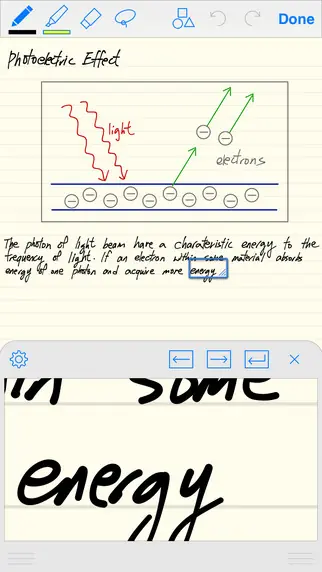 Done
Photoelectric Effect
light
electrons
The photon of light beam have a charateristic energy to the
frequency of light. If an electron within some material absorbs
energy of one photon and acquire more energy
in some
energy